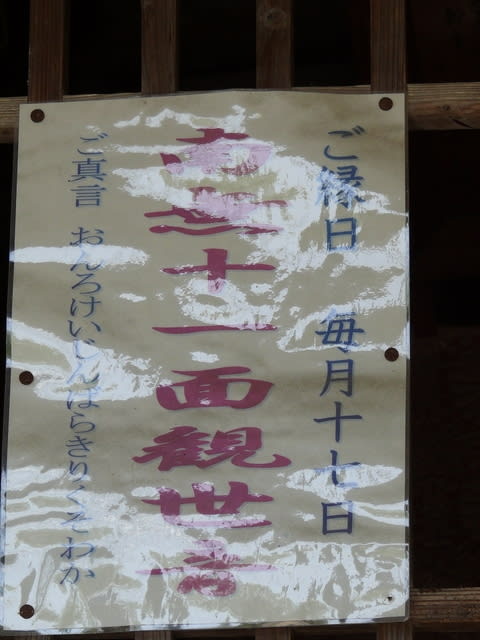 ご縁日 毎月十七日
南無十一面観世音
ご真言 おんろけいじんばらきりくそわか